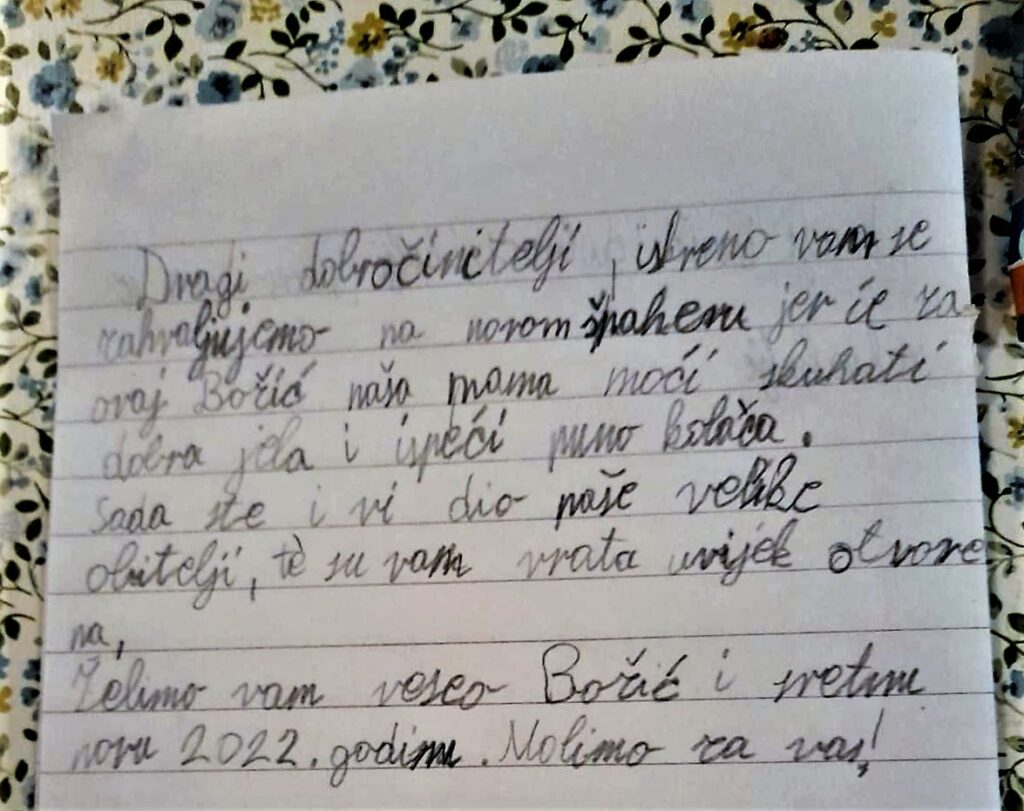 Dragi dobročinitelji, iskreno vam se
zahvaljujemo na novom špaheru jer će za
ovaj Božić naša mama moći skuhati
dobra jela i ispeći puno kolača.
Sada ste i vi dio naše velike
obitelji, te su vam vrata uvijek otvore
na,
Želimo vam veseo Božić i sretnu
novu 2022. godinu. Molimo za vas!